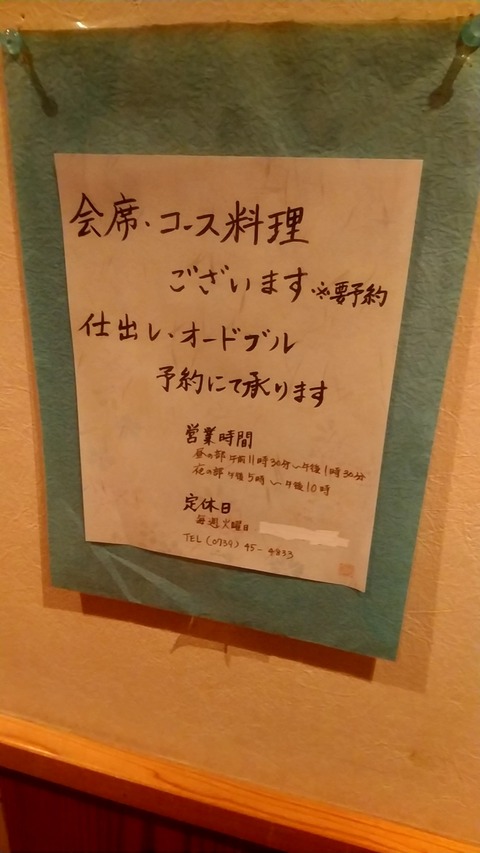 会席・コース料理
ございます ※要予約
仕出し・オードブル
予約にて承ります
営業時間
昼の部 午前11時30分～午後1時30分
夜の部 午後5時～午後10時
定休日
毎週火曜日
TEL (0739) 45-4833